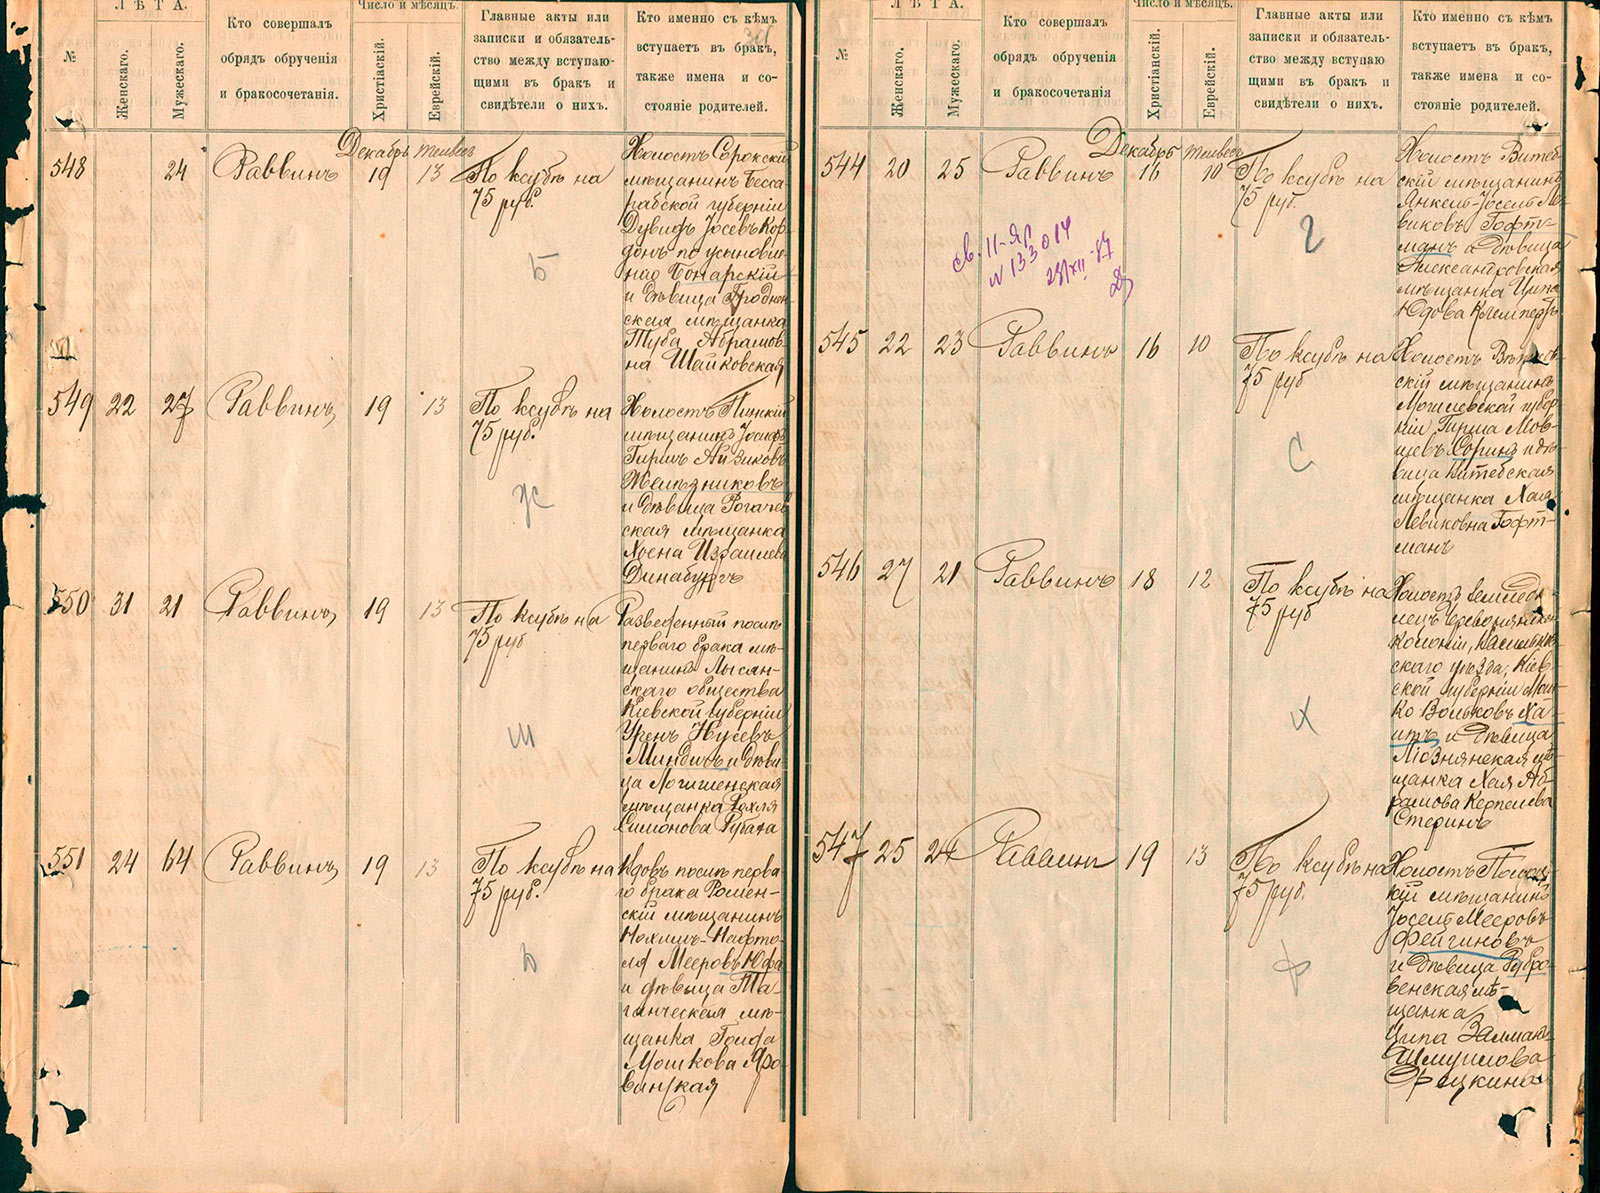 ЛѢТА.
Число и мѣсяцъ.
№
Женскаго.
Мужескаго.
Кто совершалъ
обрядъ обрученія
и бракосочетанія.
Христіаскій.
Еврейскій.
Главные акты или
записки и обязатель-
ство между вступаю-
щими въ бракъ и
свидѣтели о нихъ.
Кто именно съ кѣмъ
вступаетъ въ бракъ,
также имена и со-
стояніе родителей.
Декабрь Тейвесъ
548 24 Раввинъ 19 13 По ксубѣ на
75 руб.
Холостъ Сорокскій
мѣщанинъ Бесса-
рабской губерніи
Дувидъ Іосевъ Кор-
донъ по усыновле-
нію
и дѣвица Гроднен-
ская мѣщанка
Туба Абрамов-
на Шайковская
Б
549 22 27 Раввинъ 19 13 По ксубѣ на
75 руб.
Холостъ Пинскій
мѣщанинъ Іосифъ
Гиршъ Айзиковъ
Желѣзниковъ
и дѣвица Рогачев-
ская мѣщанка
Хьена Израилева
Динабургъ
Ж
550 31 21 Раввинъ 19 13 По ксубѣ на
75 руб
Разведенный послѣ
перваго брака мѣ-
щанинъ Лысян-
скаго общества
Кіевской губерніи
Нусевъ
Миндичъ и дѣви-
ца Логишенская
мѣщанка Рохля
Симонова
Ш
551 24 64 Раввинъ 19 13 По ксубѣ на
75 руб.
Вдовъ послѣ перва-
го брака Ромен-
скій мѣщанинъ
Нохимъ-Нафто-
ля Мееровъ Юфа
и дѣвица Та-
ганческая мѣ-
щанка Голда
Мошкова Яро-
винская
ЛѢТА.
Число и мѣсяцъ.
№
Женскаго.
Мужескаго.
Кто совершалъ
обрядъ обрученія
и бракосочетанія
Христіанскій.
Еврейскій.
Главные акты или
записки и обязатель-
ство между вступаю
щими въ бракъ и
свидѣтели о нихъ.
Кто именно съ кѣмъ
вступаетъ въ бракъ,
также имена и со-
стояніе родителей.
Декабрь Тейвесъ
544 20 25 Раввинъ 16 10 По ксубѣ на
75 руб.
Холостъ Витеб-
скій мѣщанинъ
Янкель-Іосель Ле-
виковъ Гофт-
манъ и дѣвица
Александровская
мѣщанка Ципа
Юдова
Г
св. II-Яр
N 133014
545 22 23 Раввинъ 16 10 По ксубѣ на
75 руб
Холостъ
скій мѣщанинъ
Могилевской губер-
ніи Гирша Мов-
шевъ Соринъ и дѣ-
вица Витебская
мѣщанка Хая
Левиковна Гофт-
манъ
С
546 27 21 Раввинъ 18 12 По ксубѣ на
75 руб
Холостъ земледѣ-
лецъ
колоніи, Васильков-
скаго уѣзда, Кіев-
ской губерніи Мош-
ко Вольковъ Ха-
итъ и дѣвица
Лознянская мѣ-
щанка Хая Аб-
рамова Керпелева
Стеринъ
Х
547 25 24 Раввинъ 19 13 По ксубѣ на
75 руб.
Холостъ Полоц-
кій мѣщанинъ
Іосель Мееровъ
Фейгиновъ
и дѣвица Дубро-
венская мѣ-
щанка
Ципа Залман-
Шмуилова
Фрумкина
Ф